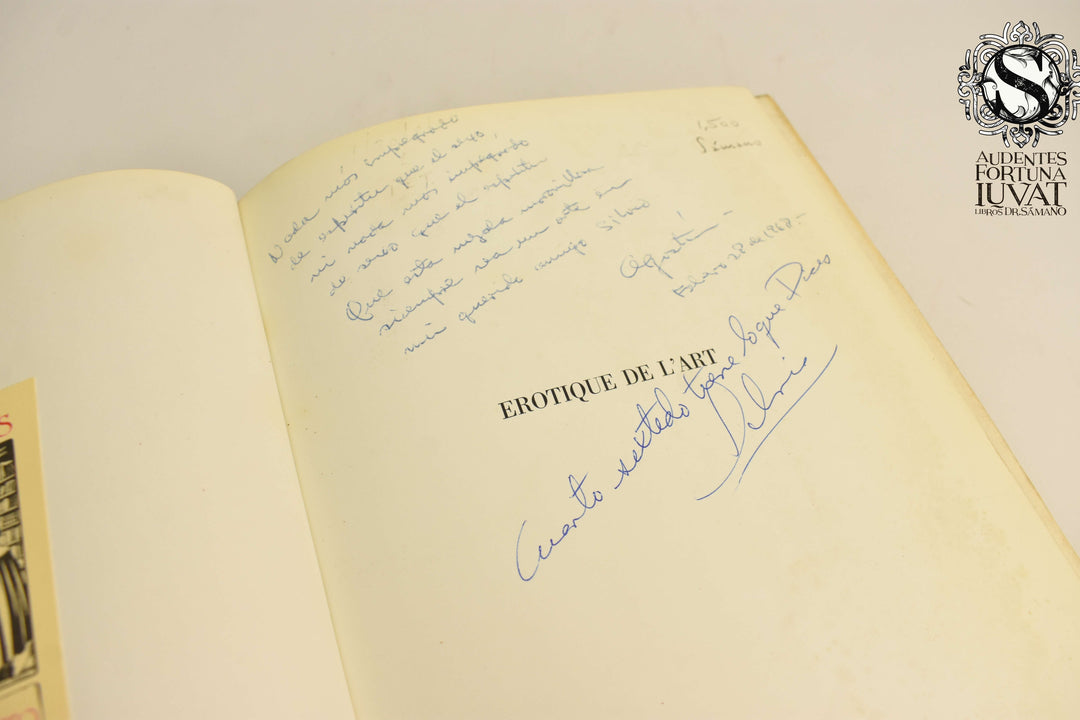 Nada más impregnado
de espíritu, que el sexo
ni nada más impregnado
de sexo que el espíritu
Que esta mezcla maravillosa
siempre sea un arte en
mi querido amigo Silvio
Agustín
Febrero 28 de 1968.-
1,500
Sámano
EROTIQUE DE L'ART
Cuanto sextedo tiene lo que Dices
Silvio
S
S
AUDENTES
FORTUNA
IUVAT
LIBROS DR. SÁMANO